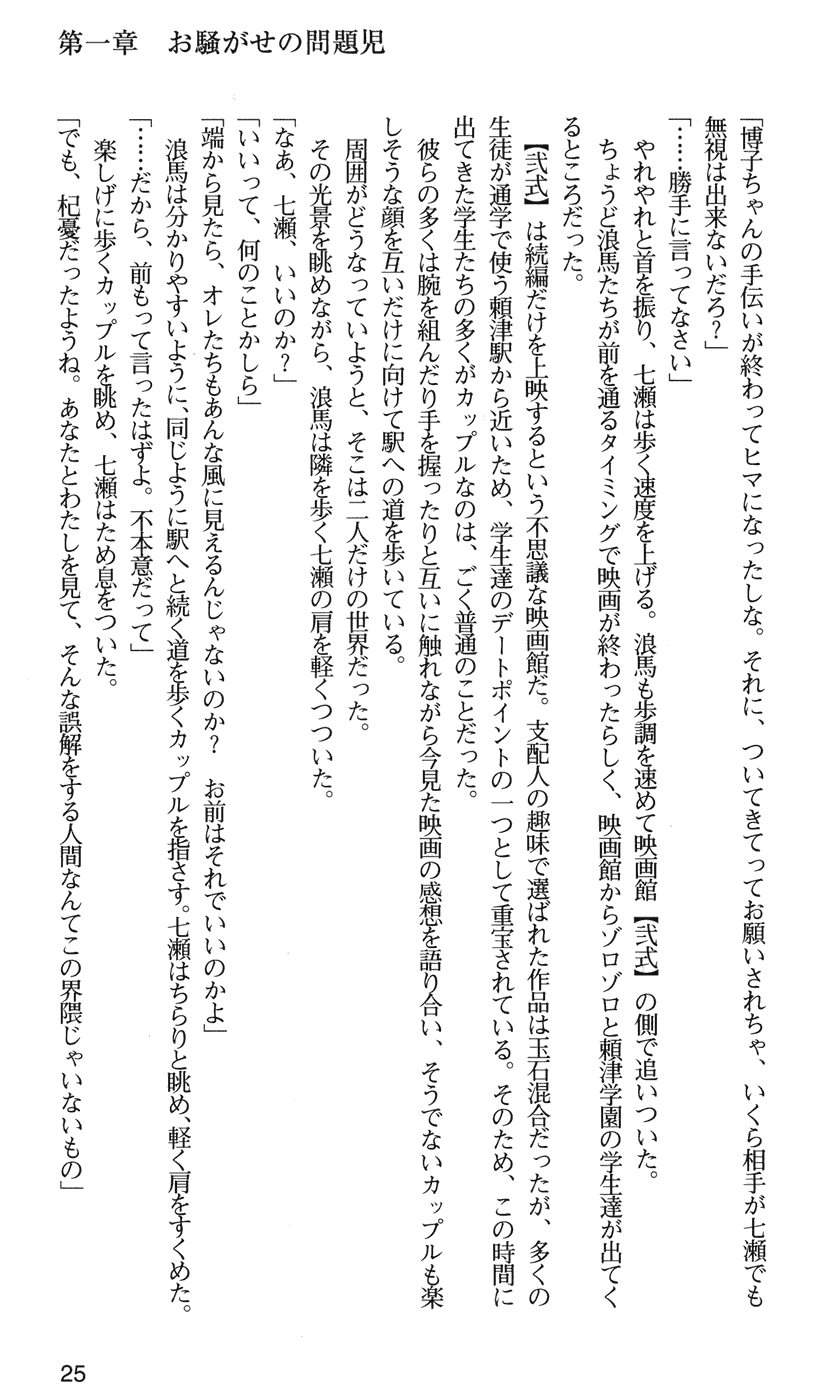 第一章　お騒がせの問題児
「博子ちゃんの手伝いが終わってヒマになったしな。それに、ついてきてってお願いされちゃ、いくら相手が七瀬でも
無視は出来ないだろ？」
「……勝手に言ってなさい」
　やれやれと首を振り、七瀬は歩く速度を上げる。浪馬も歩調を速めて映画館【弐式】の側で追いついた。
　ちょうど浪馬たちが前を通るタイミングで映画が終わったらしく、映画館からゾロゾロと頼津学園の学生達が出てく
るところだった。
　【弐式】は続編だけを上映するという不思議な映画館だ。支配人の趣味で選ばれた作品は玉石混合だったが、多くの
生徒が通学で使う頼津駅から近いため、学生達のデートポイントの一つとして重宝されている。そのため、この時間に
出てきた学生たちの多くがカップルなのは、ごく普通のことだった。
　彼らの多くは腕を組んだり手を握ったりと互いに触れながら今見た映画の感想を語り合い、そうでないカップルも楽
しそうな顔を互いだけに向けて駅への道を歩いている。
　周囲がどうなっていようと、そこは二人だけの世界だった。
　その光景を眺めながら、浪馬は隣を歩く七瀬の肩を軽くつついた。
「なぁ、七瀬、いいのか？」
「いいって、何のことかしら」
「端から見たら、オレたちもあんな風に見えるんじゃないのか？　お前はそれでいいのかよ」
　浪馬は分かりやすいように、同じように駅へと続く道を歩くカップルを指さす。七瀬はちらりと眺め、軽く肩をすくめた。
「……だから、前もって言ったはずよ。不本意だって」
　楽しげに歩くカップルを眺め、七瀬はため息をついた。
「でも、杞憂だったようね。あなたとわたしを見て、そんな誤解をする人間なんてこの界隈じゃいないもの」
25